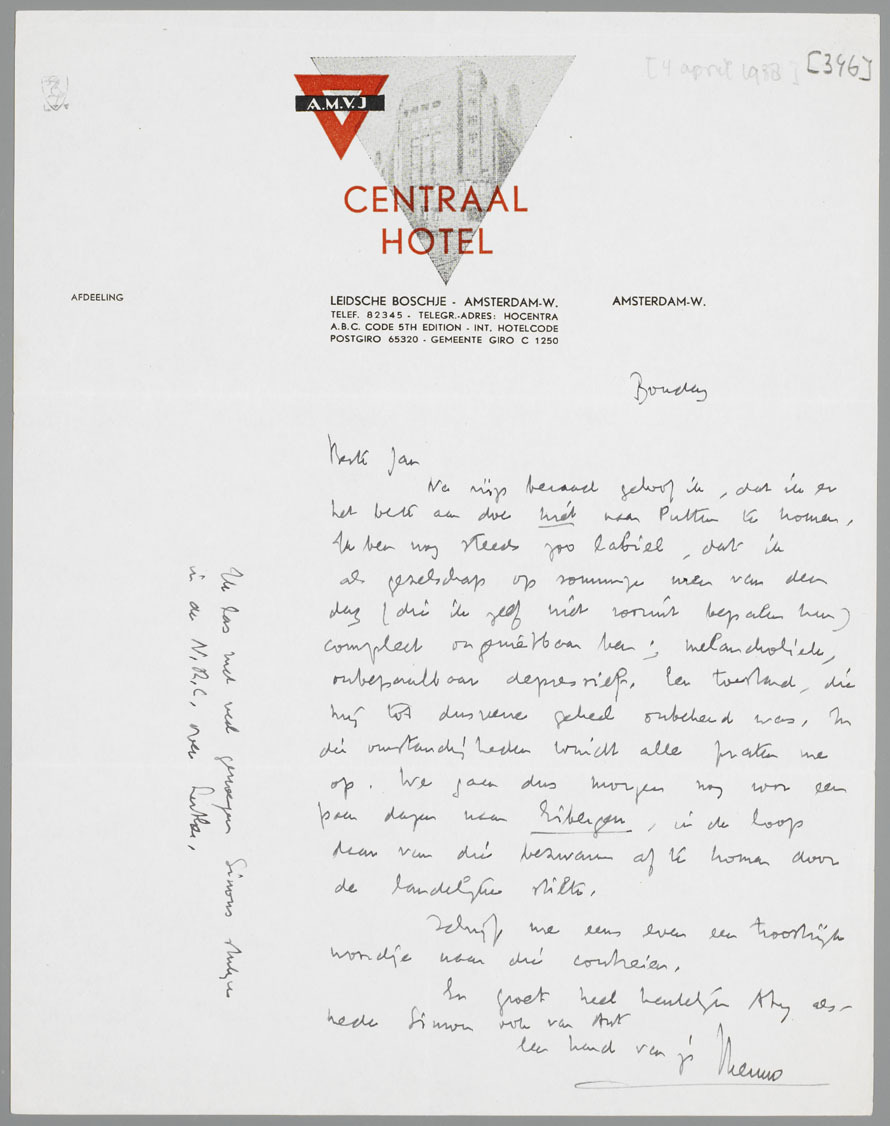 [4 april 1938] [396]
A.M.V.J
CENTRAAL
HOTEL
AFDEELING
LEIDSCHE BOSCHJE - AMSTERDAM-W.
AMSTERDAM-W.
TELEF. 82345 - TELEGR.-ADRES: HOCENTRA
A.B.C. CODE 5TH EDITION - INT. HOTELCODE
POSTGIRO 65320 - GEMEENTE GIRO C 1250
Beste Jan
Na rijp beraad geloof ik, dat ik er
het beste aan doe niet naar Putten te komen.
Ik ben nog steeds zoo labiel, dat ik
als gezelschap op sommige uren van den
dag (die ik zelf niet vooruit bepalen kan)
compleet ongenietbaar ben; melancholiek,
onbepaalbaar depressief. Een toestand, die
mij tot dusverre geheel onbekend was. In
die omstandigheden windt alle praten me
op. We gaan dus morgen nog voor een
paar dagen naar Eibergen, in de hoop
daar van die bezwaren af te komen door
de landelijke stilte.
Schrijf me eens even een troostrijk
woordje naar die contreien.
En groet heel hartelijk Aty als-
mede Simon ook van Ant
Een hand van je Menno
Ik las met veel genoegen Simons stukje
in de N.R.C. over